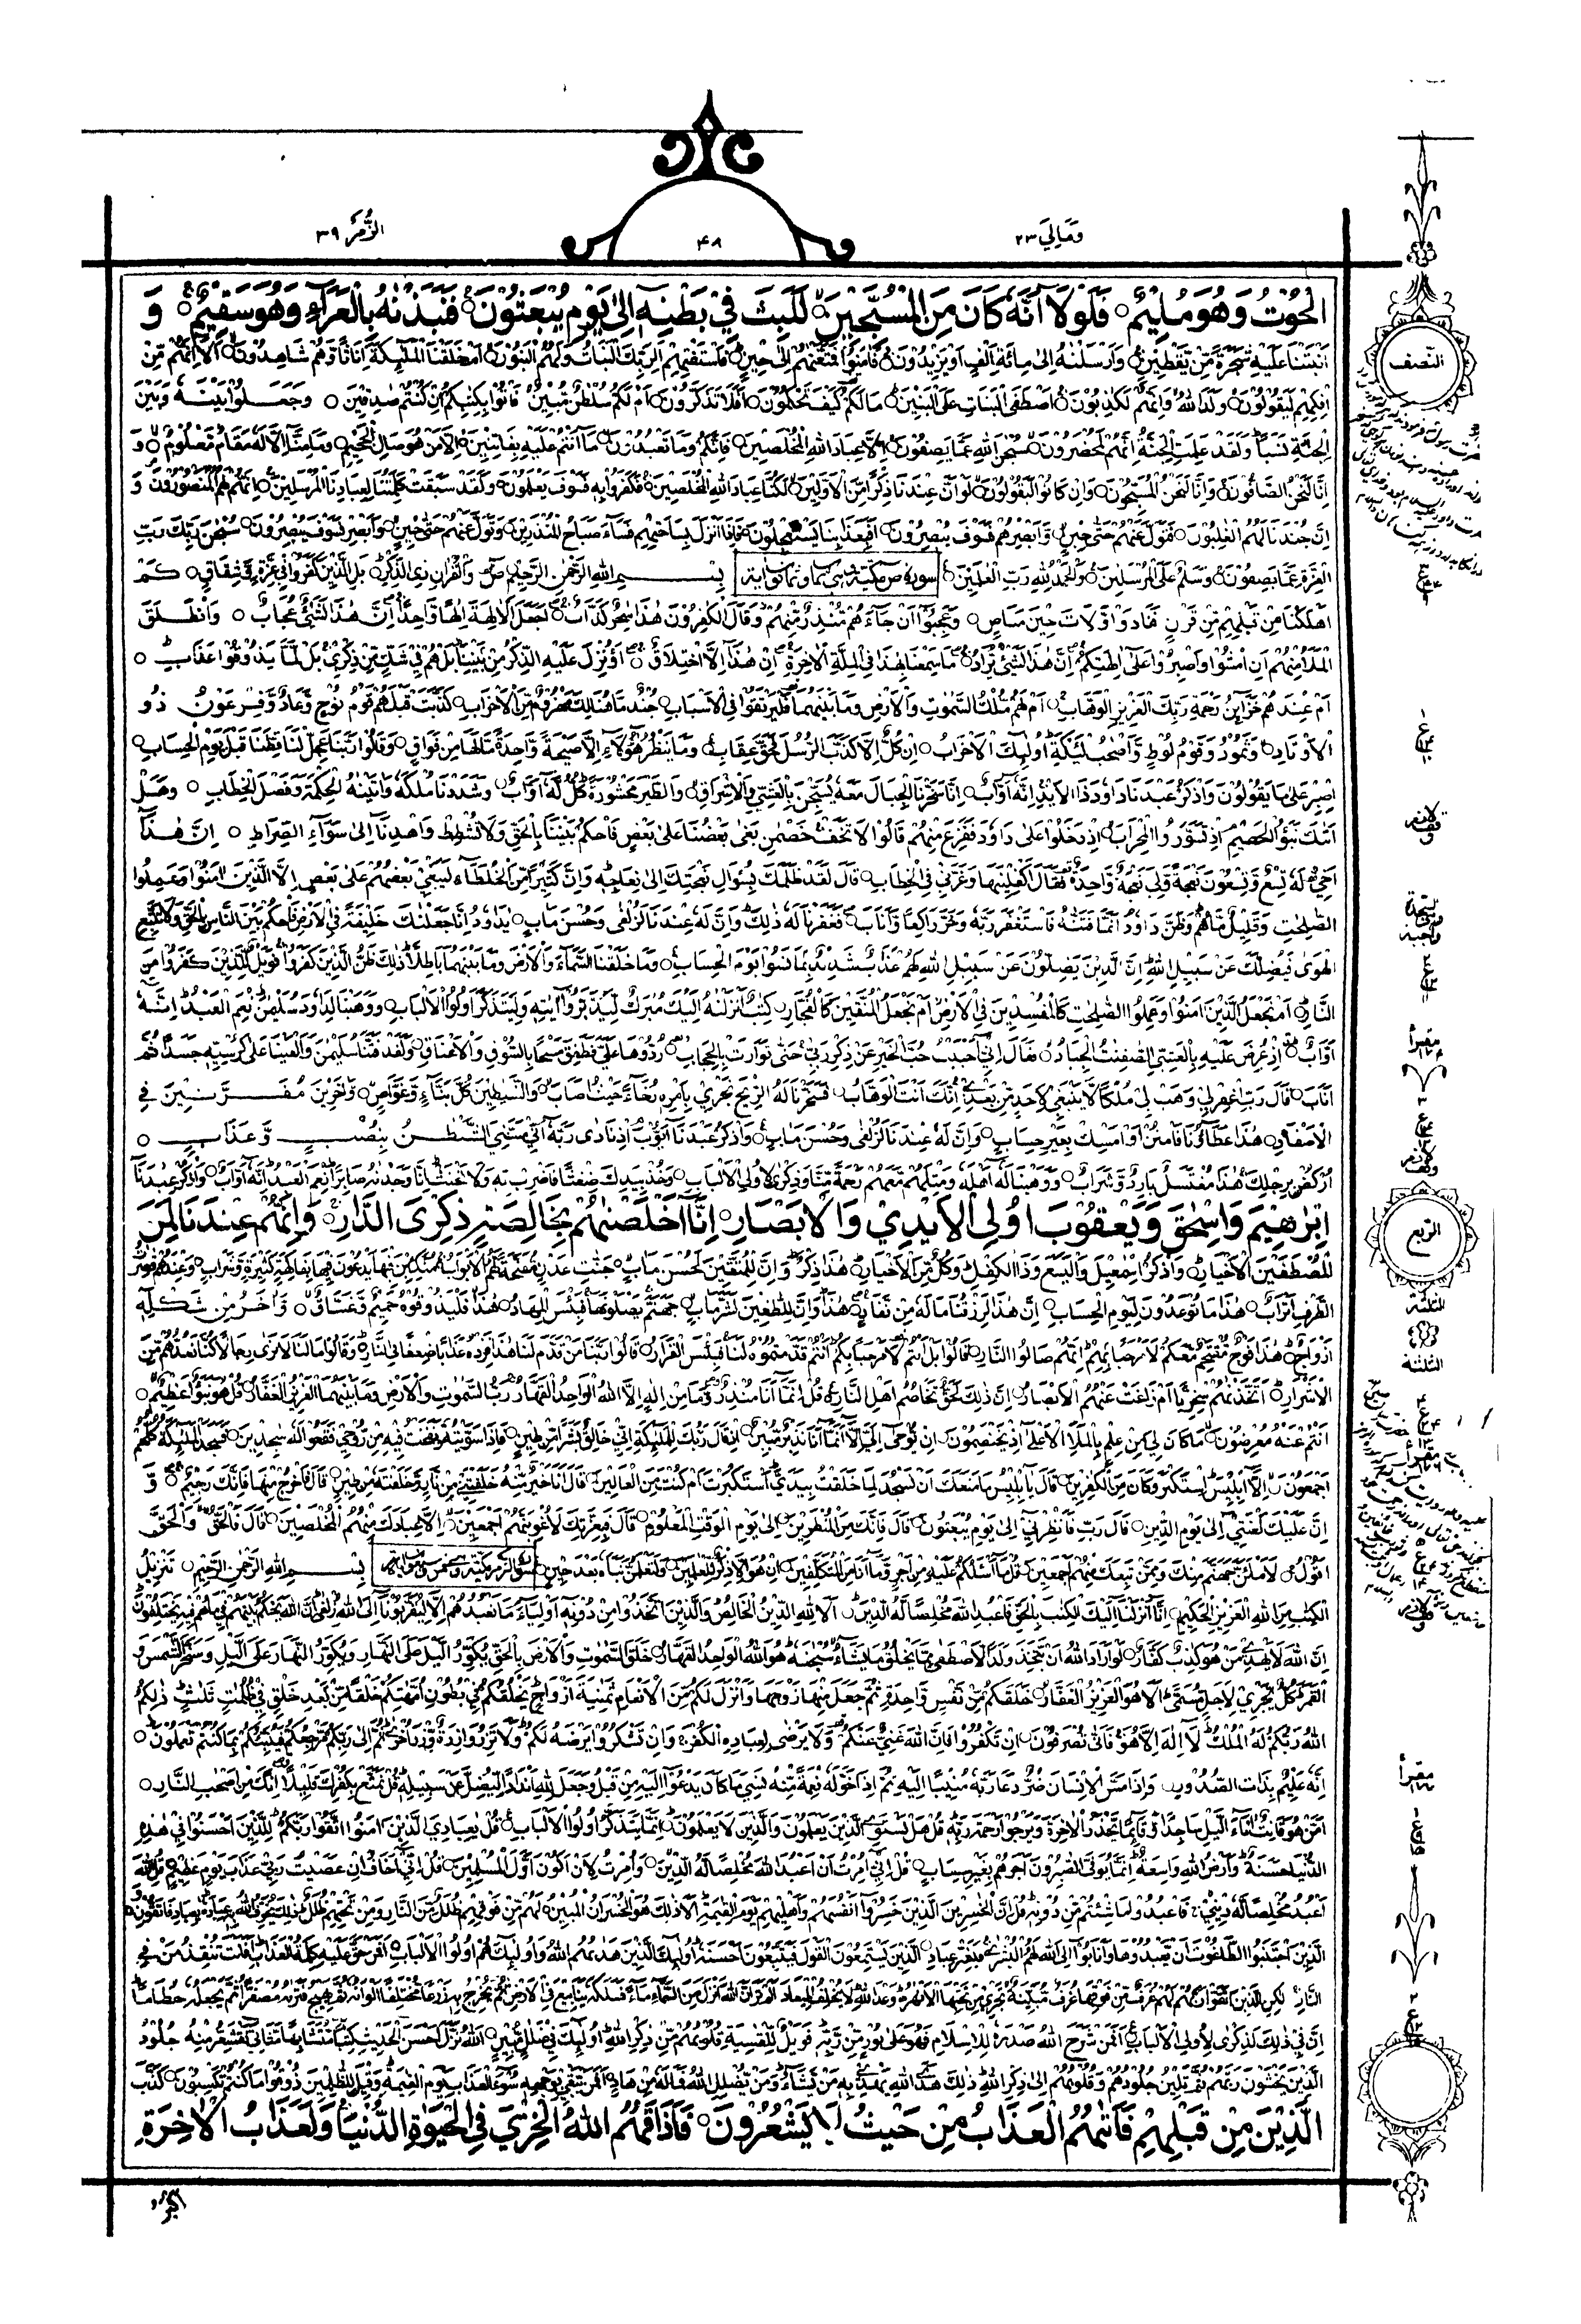 ومالي ٢٣
٤٨
الزمر ٣٩
الحوت وهو مليم ○ فلولا انه كان من المسبحين ○ للبث في بطنه الى يوم يبعثون ○ فنبذنه بالعراء وهو سقيم ○ و
انبتنا عليه شجرة من يقطين ○ وارسلنه الى مائة الف او يزيدون ○ فامنوا فمتعنهم الى حين ○ فاستفتهم الربك البنات ولهم البنون ○ ام خلقنا الملئكة اناثا وهم شاهدون ○ الا انهم من
افكهم ليقولون ○ ولد الله وانهم لكذبون ○ اصطفى البنات على البنين ○ مالكم كيف تحكمون ○ افلا تذكرون ○ ام لكم سلطن مبين ○ فاتوا بكتبكم ان كنتم صدقين ○ وجعلوا بينه وبين
الجنة نسبا ولقد علمت الجنة انهم لمحضرون ○ سبحن الله عما يصفون ○ الا عباد الله المخلصين ○ فانكم وما تعبدون ○ ما انتم عليه بفاتنين ○ الا من هو صال الجحيم ○ وما منا الا له مقام معلوم ○ و
انا لنحن الصافون ○ وانا لنحن المسبحون ○ وان كانوا ليقولون ○ لو ان عندنا ذكرا من الاولين ○ لكنا عباد الله المخلصين ○ فكفروا به فسوف يعلمون ○ ولقد سبقت كلمتنا لعبادنا المرسلين ○ انهم لهم المنصورون ○ و
ان جندنا لهم الغلبون ○ فتول عنهم حتى حين ○ وابصرهم فسوف يبصرون ○ افبعذابنا يستعجلون ○ فاذا انزل بساحتهم فساء صباح المنذرين ○ وتول عنهم حتى حين ○ وابصر فسوف يبصرون ○ سبحن ربك رب
العزة عما يصفون ○ وسلم على المرسلين ○ والحمد لله رب العلمين ○ سورة ص مكية وهي ثمان وثمانون اية بسم الله الرحمن الرحيم ص والقران ذي الذكر ○ بل الذين كفروا في عزة وشقاق ○ كم
اهلكنا من قبلهم من قرن فنادوا ولات حين مناص ○ وعجبوا ان جاءهم منذر منهم وقال الكفرون هذا سحر كذاب ○ اجعل الالهة الها واحدا ان هذا لشيء عجاب ○ وانطلق
الملا منهم ان امشوا واصبروا على الهتكم ان هذا لشيء يراد ○ ما سمعنا بهذا في الملة الاخرة ان هذا الا اختلاق ○ ءانزل عليه الذكر من بيننا بل هم في شك من ذكري بل لما يذوقوا عذاب ○
ام عندهم خزائن رحمة ربك العزيز الوهاب ○ ام لهم ملك السموت والارض وما بينهما فليرتقوا في الاسباب ○ جند ما هنالك مهزوم من الاحزاب ○ كذبت قبلهم قوم نوح وعاد وفرعون ذو
الاوتاد ○ وثمود وقوم لوط واصحب لئيكة اولئك الاحزاب ○ ان كل الا كذب الرسل فحق عقاب ○ وما ينظر هؤلاء الا صيحة واحدة ما لها من فواق ○ وقالوا ربنا عجل لنا قطنا قبل يوم الحساب ○
اصبر على ما يقولون واذكر عبدنا داود ذا الايد انه اواب ○ انا سخرنا الجبال معه يسبحن بالعشي والاشراق ○ والطير محشورة كل له اواب ○ وشددنا ملكه واتينه الحكمة وفصل الخطاب ○ وهل
اتىك نبؤا الخصم اذ تسوروا المحراب ○ اذ دخلوا على داود ففزع منهم قالوا لا تخف خصمن بغى بعضنا على بعض فاحكم بيننا بالحق ولا تشطط واهدنا الى سواء الصراط ○ ان هذا
اخي له تسع وتسعون نعجة ولي نعجة واحدة فقال اكفلنيها وعزني في الخطاب ○ قال لقد ظلمك بسؤال نعجتك الى نعاجه وان كثيرا من الخلطاء ليبغي بعضهم على بعض الا الذين امنوا وعملوا
الصلحت وقليل ما هم وظن داود انما فتنه فاستغفر ربه وخر راكعا واناب ○ فغفرنا له ذلك وان له عندنا لزلفى وحسن ماب ○ يداود انا جعلنك خليفة في الارض فاحكم بين الناس بالحق ولا تتبع
الهوى فيضلك عن سبيل الله ان الذين يضلون عن سبيل الله لهم عذاب شديد بما نسوا يوم الحساب ○ وما خلقنا السماء والارض وما بينهما باطلا ذلك ظن الذين كفروا فويل للذين كفروا من
النار ○ ام نجعل الذين امنوا وعملوا الصلحت كالمفسدين في الارض ام نجعل المتقين كالفجار ○ كتب انزلنه اليك مبرك ليدبروا ايته وليتذكر اولوا الالباب ○ ووهبنا لداود سليمن نعم العبد انه
اواب ○ اذ عرض عليه بالعشي الصفنت الجياد ○ فقال اني احببت حب الخير عن ذكر ربي حتى توارت بالحجاب ○ ردوها علي فطفق مسحا بالسوق والاعناق ○ ولقد فتنا سليمن والقينا على كرسيه جسدا ثم
اناب ○ قال رب اغفر لي وهب لي ملكا لا ينبغي لاحد من بعدي انك انت الوهاب ○ فسخرنا له الريح تجري بامره رخاء حيث اصاب ○ والشيطين كل بناء وغواص ○ واخرين مقرنين في
الاصفاد ○ هذا عطاؤنا فامنن او امسك بغير حساب ○ وان له عندنا لزلفى وحسن ماب ○ واذكر عبدنا ايوب اذ نادى ربه اني مسني الشيطن بنصب وعذاب ○
اركض برجلك هذا مغتسل بارد وشراب ○ ووهبنا له اهله ومثلهم معهم رحمة منا وذكرى لاولي الالباب ○ وخذ بيدك ضغثا فاضرب به ولا تحنث انا وجدنه صابرا نعم العبد انه اواب ○ واذكر عبدنا
ابرهيم واسحق ويعقوب اولي الايدي والابصار ○ انا اخلصنهم بخالصة ذكرى الدار ○ وانهم عندنا لمن
المصطفين الاخيار ○ واذكر اسمعيل واليسع وذا الكفل وكل من الاخيار ○ هذا ذكر وان للمتقين لحسن ماب ○ جنت عدن مفتحة لهم الابواب ○ متكئين فيها يدعون فيها بفاكهة كثيرة وشراب ○ وعندهم قصرت
الطرف اتراب ○ هذا ما توعدون ليوم الحساب ○ ان هذا لرزقنا ما له من نفاد ○ هذا وان للطغين لشر ماب ○ جهنم يصلونها فبئس المهاد ○ هذا فليذوقوه حميم وغساق ○ واخر من شكله
ازواج ○ هذا فوج مقتحم معكم لا مرحبا بهم انهم صالوا النار ○ قالوا بل انتم لا مرحبا بكم انتم قدمتموه لنا فبئس القرار ○ قالوا ربنا من قدم لنا هذا فزده عذابا ضعفا في النار ○ وقالوا ما لنا لا نرى رجالا كنا نعدهم من
الاشرار ○ اتخذنهم سخريا ام زاغت عنهم الابصار ○ ان ذلك لحق تخاصم اهل النار ○ قل انما انا منذر وما من اله الا الله الواحد القهار ○ رب السموت والارض وما بينهما العزيز الغفار ○ قل هو نبؤ عظيم ○
انتم عنه معرضون ○ ما كان لي من علم بالملا الاعلى اذ يختصمون ○ ان يوحى الي الا انما انا نذير مبين ○ اذ قال ربك للملئكة اني خالق بشرا من طين ○ فاذا سويته ونفخت فيه من روحي فقعوا له سجدين ○ فسجد الملئكة كلهم
اجمعون ○ الا ابليس استكبر وكان من الكفرين ○ قال يا ابليس ما منعك ان تسجد لما خلقت بيدي استكبرت ام كنت من العالين ○ قال انا خير منه خلقتني من نار وخلقته من طين ○ قال فاخرج منها فانك رجيم ○ و
ان عليك لعنتي الى يوم الدين ○ قال رب فانظرني الى يوم يبعثون ○ قال فانك من المنظرين ○ الى يوم الوقت المعلوم ○ قال فبعزتك لاغوينهم اجمعين ○ الا عبادك منهم المخلصين ○ قال فالحق والحق
اقول ○ لاملئن جهنم منك وممن تبعك منهم اجمعين ○ قل ما اسئلكم عليه من اجر وما انا من المتكلفين ○ ان هو الا ذكر للعلمين ○ ولتعلمن نباه بعد حين ○ سورة الزمر مكية وهي خمس وسبعون اية بسم الله الرحمن الرحيم ○ تنزيل
الكتب من الله العزيز الحكيم ○ انا انزلنا اليك الكتب بالحق فاعبد الله مخلصا له الدين ○ الا لله الدين الخالص والذين اتخذوا من دونه اولياء ما نعبدهم الا ليقربونا الى الله زلفى ان الله يحكم بينهم في ما هم فيه يختلفون
ان الله لا يهدي من هو كذب كفار ○ لو اراد الله ان يتخذ ولدا لاصطفى مما يخلق ما يشاء سبحنه هو الله الواحد القهار ○ خلق السموت والارض بالحق يكور اليل على النهار ويكور النهار على اليل وسخر الشمس و
القمر كل يجري لاجل مسمى الا هو العزيز الغفار ○ خلقكم من نفس واحدة ثم جعل منها زوجها وانزل لكم من الانعام ثمنية ازواج يخلقكم في بطون امهتكم خلقا من بعد خلق في ظلمت ثلث ذلكم
الله ربكم له الملك لا اله الا هو فانى تصرفون ○ ان تكفروا فان الله غني عنكم ولا يرضى لعباده الكفر وان تشكروا يرضه لكم ولا تزر وازرة وزر اخرى ثم الى ربكم مرجعكم فينبئكم بما كنتم تعملون ○
انه عليم بذات الصدور ○ واذا مس الانسان ضر دعا ربه منيبا اليه ثم اذا خوله نعمة منه نسي ما كان يدعوا اليه من قبل وجعل لله اندادا ليضل عن سبيله قل تمتع بكفرك قليلا انك من اصحب النار ○
امن هو قانت اناء اليل ساجدا وقائما يحذر الاخرة ويرجوا رحمة ربه قل هل يستوي الذين يعلمون والذين لا يعلمون انما يتذكر اولوا الالباب ○ قل يعبادي الذين امنوا اتقوا ربكم للذين احسنوا في هذه
الدنيا حسنة وارض الله واسعة انما يوفى الصبرون اجرهم بغير حساب ○ قل اني امرت ان اعبد الله مخلصا له الدين ○ وامرت لان اكون اول المسلمين ○ قل اني اخاف ان عصيت ربي عذاب يوم عظيم ○ قل الله
اعبد مخلصا له ديني ○ فاعبدوا ما شئتم من دونه قل ان الخسرين الذين خسروا انفسهم واهليهم يوم القيمة الا ذلك هو الخسران المبين ○ لهم من فوقهم ظلل من النار ومن تحتهم ظلل ذلك يخوف الله به عباده يعباد فاتقون ○ و
الذين اجتنبوا الطاغوت ان يعبدوها وانابوا الى الله لهم البشرى فبشر عباد ○ الذين يستمعون القول فيتبعون احسنه اولئك الذين هدىهم الله واولئك هم اولوا الالباب ○ افمن حق عليه كلمة العذاب افانت تنقذ من في
النار ○ لكن الذين اتقوا ربهم لهم غرف من فوقها غرف مبنية تجري من تحتها الانهر وعد الله لا يخلف الله الميعاد ○ الم تر ان الله انزل من السماء ماء فسلكه ينابيع في الارض ثم يخرج به زرعا مختلفا الوانه ثم يهيج فتراه مصفرا ثم يجعله حطاما
ان في ذلك لذكرى لاولي الالباب ○ افمن شرح الله صدره للاسلام فهو على نور من ربه فويل للقسية قلوبهم من ذكر الله اولئك في ضلل مبين ○ الله نزل احسن الحديث كتبا متشابها مثاني تقشعر منه جلود
الذين يخشون ربهم ثم تلين جلودهم وقلوبهم الى ذكر الله ذلك هدى الله يهدي به من يشاء ومن يضلل الله فما له من هاد ○ افمن يتقي بوجهه سوء العذاب يوم القيمة وقيل للظلمين ذوقوا ما كنتم تكسبون ○ كذب
الذين من قبلهم فاتىهم العذاب من حيث لا يشعرون ○ فاذاقهم الله الخزي في الحيوة الدنيا ولعذاب الاخرة
اكبر
النصف
وقف لازم
الربع
الثلثة
الثلثة